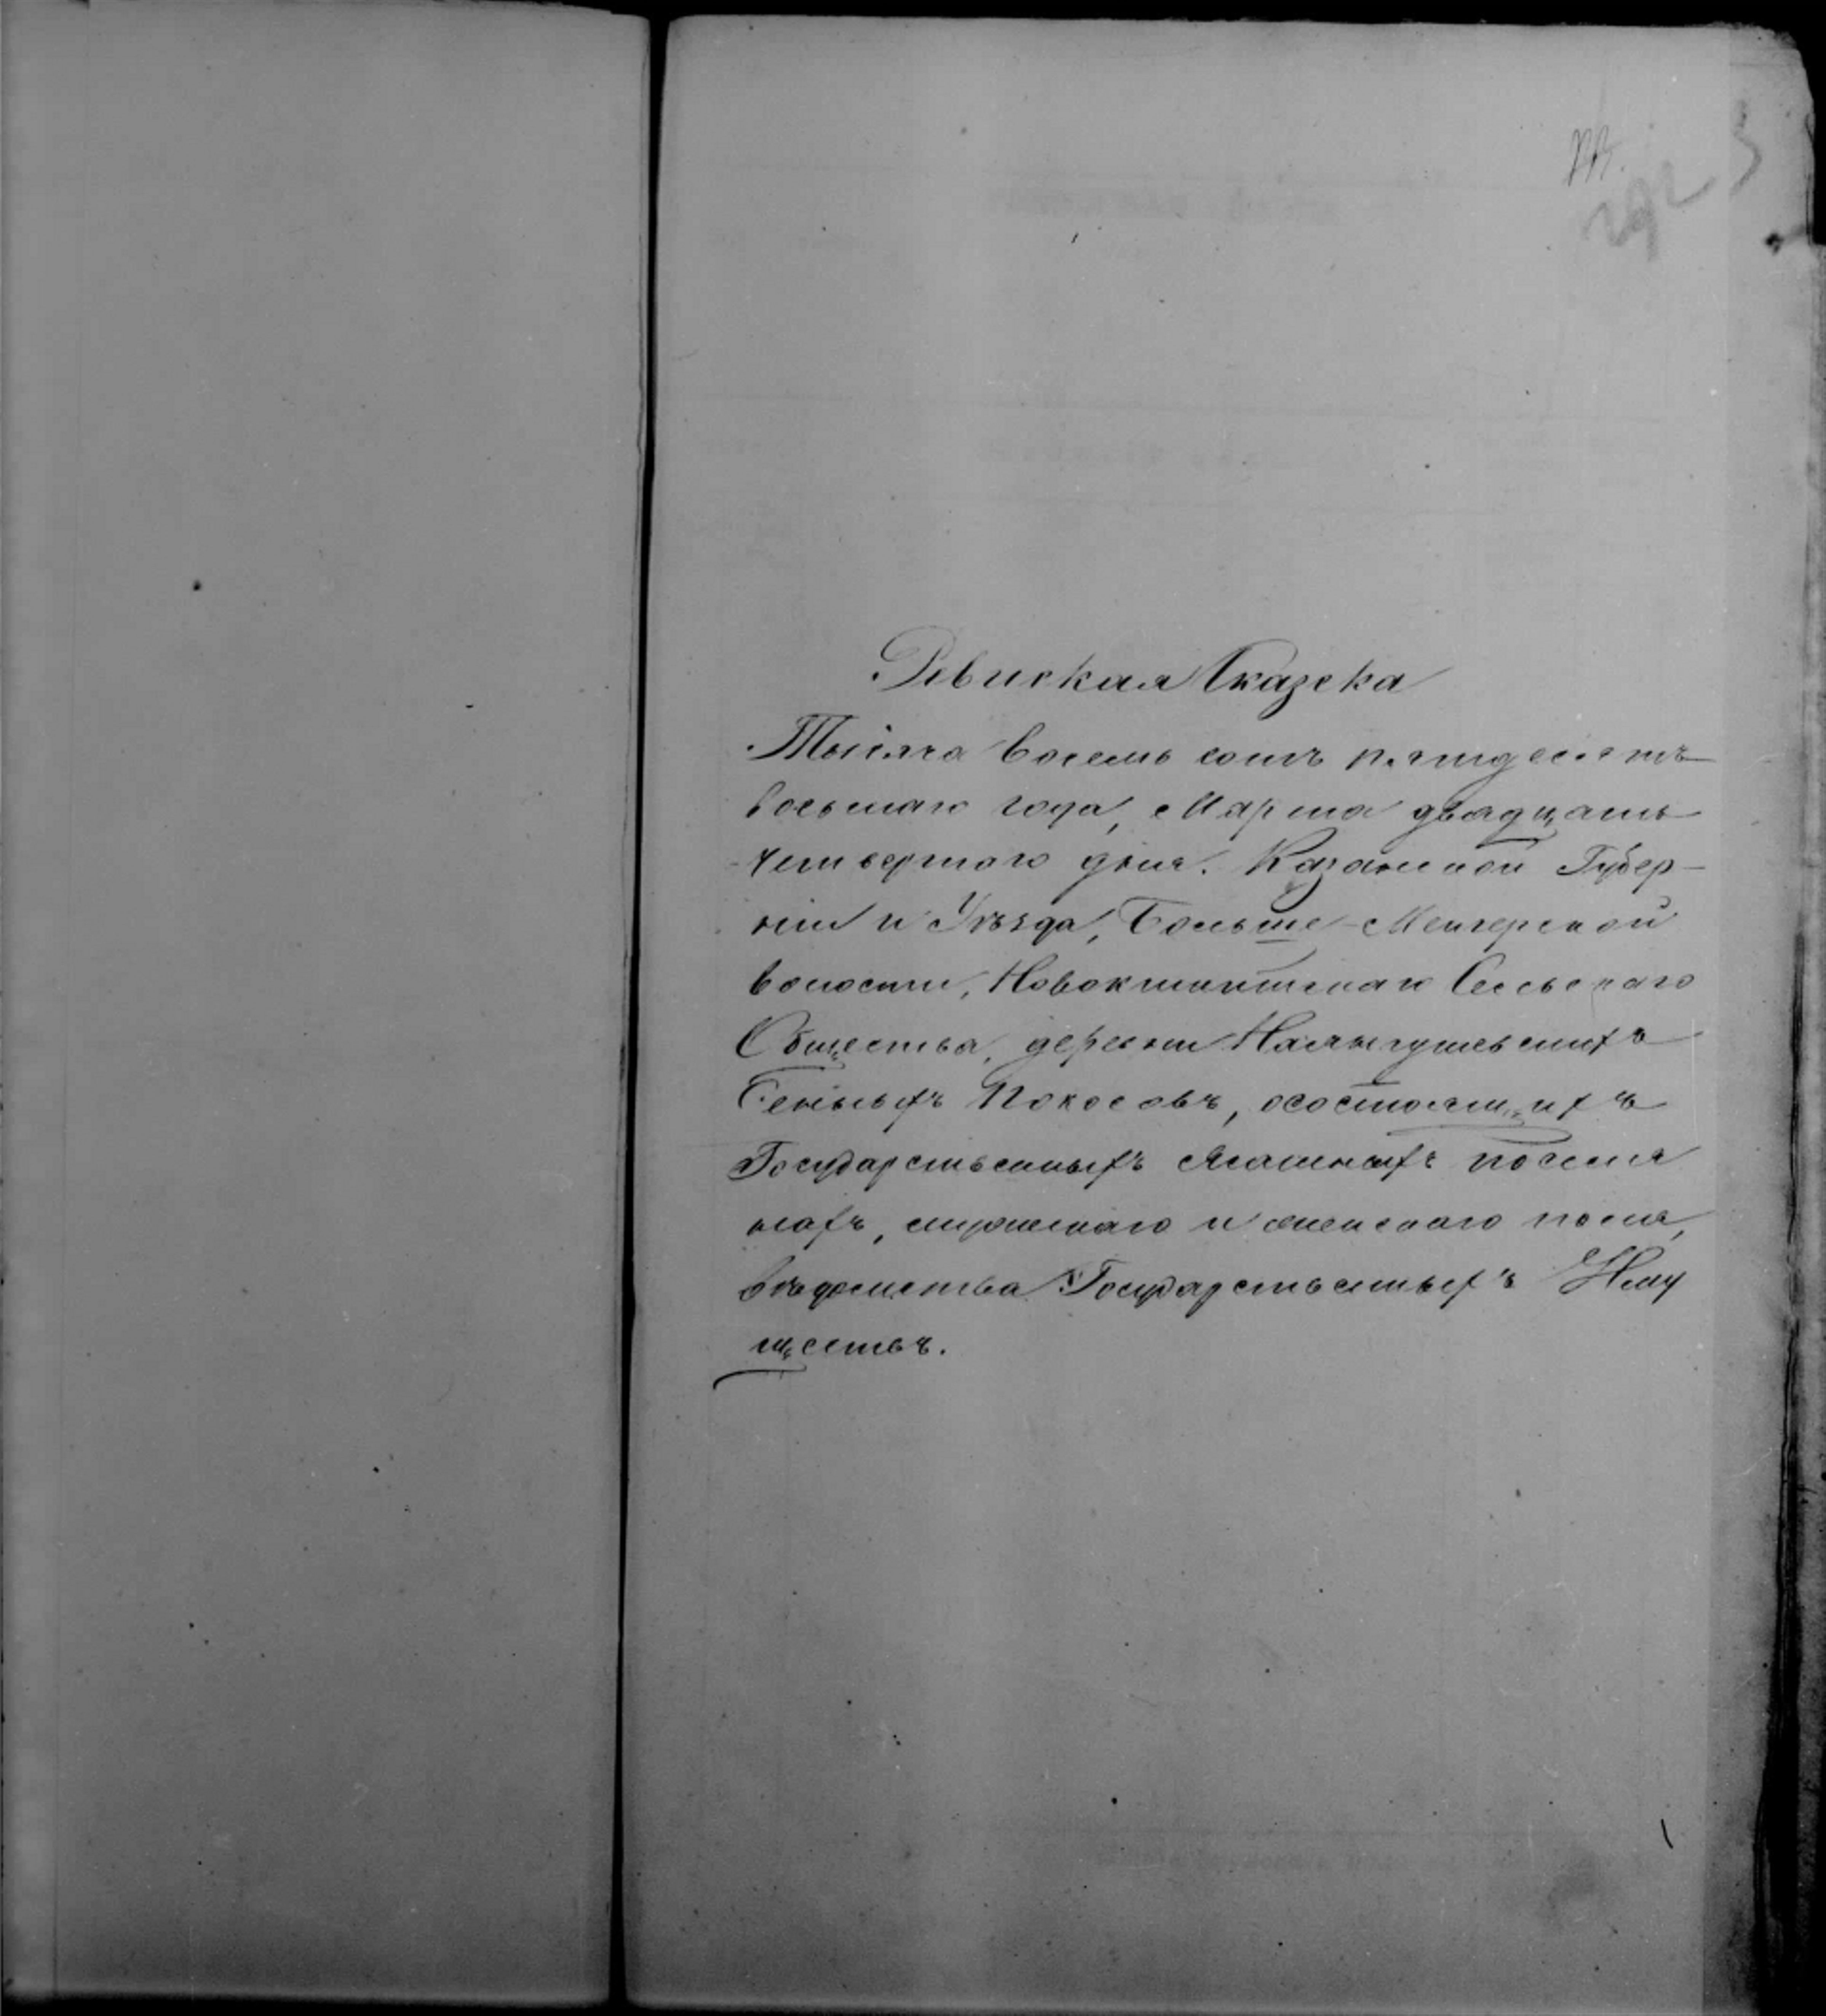 Ревиская Сказска
Тысяча восемь сотъ пятидесятъ
восьмаго года, Марта двадцать
четвертаго дня. Казанской Губер-
ніи и Уѣзда, Больше-Менгерской
волости, Новокишитскаго Сельскаго
Общества, деревни
Сенныхъ Покосовъ, осостоящихъ
Государственныхъ Ясашныхъ поселя
нахъ, мужескаго и женскаго пола,
вѣдомства Государственныхъ Иму
ществъ.